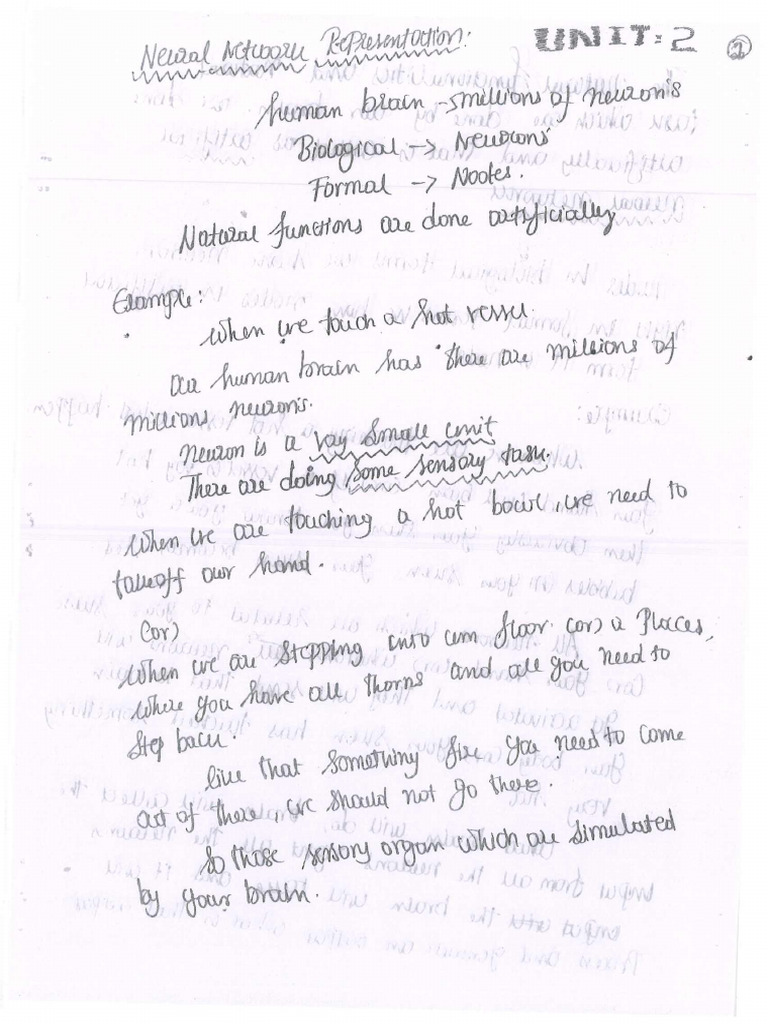 Neural Network Representation: UNIT: 2 1
human brain → millions of neuron's
Biological → Neurons
Formal → Nodes.
Natural functions are done artificially
Example:
When we touch a hot vessel.
Our human brain has there are millions of
millions neuron's.
neuron is a very small unit
There are doing some sensory task.
When we are touching a hot bowl, we need to
takeoff our hand.
(or)
When we are stepping into um floor (or) a Places,
Where you have all thorns and all you need to
Step back.
like that something fire you need to come
out of there, we should not go there.
So those sensory organ which are simulated
by your brain.